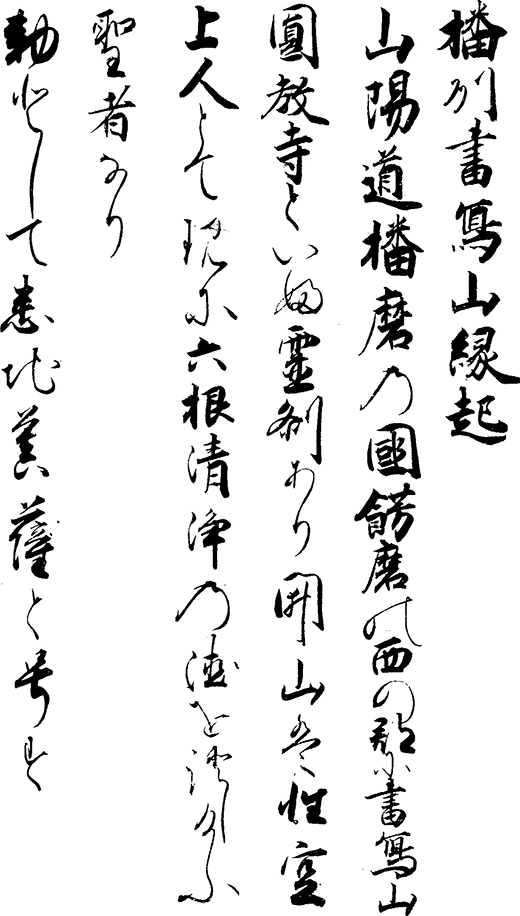 播州書寫山縁起
山陽道播磨乃國餝磨の西の郡に書寫山
圓教寺といふ靈刹あり開山は性空
上人とて現に六根清淨乃徳を證し給ふ
聖者なり
勅として悉地菩薩と号す